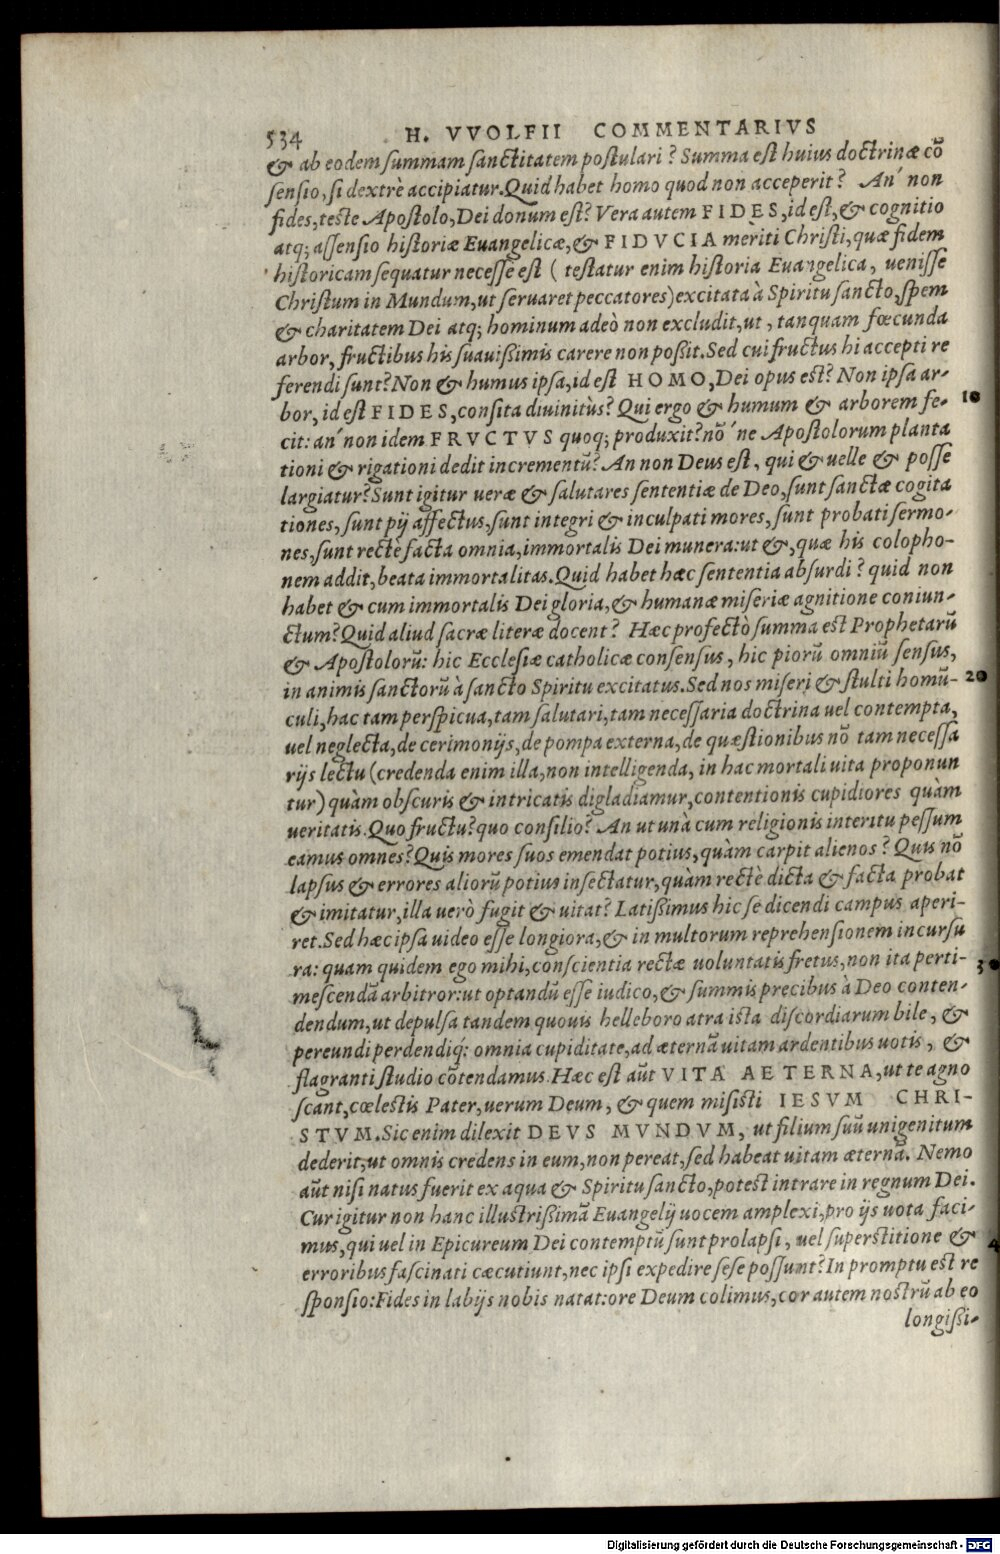 534 H. VVOLFII COMMENTARIVS
& ab eodem summam sanctitatem postulari? Summa est huius doctrinæ cō
sensio, si dextrè accipiatur. Quid habet homo quod non acceperit? An´ non
fides, teste Apostolo, Dei donum est? Vera autem FIDES, id est, & cognitio
atq; assensio historiæ Euangelicæ, & FIDVCIA meriti Christi, quæ fidem
historicam sequatur necesse est ( testatur enim historia Euangelica, uenisse
Christum in Mundum, ut seruaret peccatores) excitata à Spiritu sancto, spem
& charitatem Dei atq; hominum adeò non excludit, ut, tanquam fœcunda
arbor, fructibus his suauißimis carere non poßit. Sed cui fructus hi accepti re
ferendi sunt? Non & humus ipsa, id est HOMO, Dei opus est? Non ipsa ar-
bor, id est FIDES, consita diuinitùs? Qui ergo & humum & arborem fe- 10
cit: an´ non idem FRVCTVS quoq; produxit? nō´ne Apostolorum planta
tioni & rigationi dedit incrementū? An non Deus est, qui & uelle & posse
largiatur? Sunt igitur ueræ & salutares sententiæ de Deo, sunt sanctæ cogita
tiones, sunt pij affectus, sunt integri & inculpati mores, sunt probati sermo-
nes, sunt rectè facta omnia, immortalis Dei munera: ut &, quæ his colopho-
nem addit, beata immortalitas. Quid habet hæc sententia absurdi? quid non
habet & cum immortalis Dei gloria, & humanæ miseriæ agnitione coniun-
ctum? Quid aliud sacræ literæ docent? Hæc profectò summa est Prophetarū
& Apostolorū: hic Ecclesiæ catholicæ consensus, hic piorū omniū sensus,
in animis sanctorū à sancto Spiritu excitatus. Sed nos miseri & stulti homū- 20
culi, hac tam perspicua, tam salutari, tam necessaria doctrina uel contempta,
uel neglecta, de cerimonijs, de pompa externa, de quæstionibus nō tam necessa
rijs lectu (credenda enim illa, non intelligenda, in hac mortali uita proponun
tur) quàm obscuris & intricatis digladiamur, contentionis cupidiores quàm
ueritatis. Quo fructu? quo consilio? An ut unà cum religionis interitu pessum
eamus omnes? Quis mores suos emendat potius, quàm carpit alienos? Quis nō
lapsus & errores aliorū potius insectatur, quàm rectè dicta & facta probat
& imitatur, illa uerò fugit & uitat? Latißimus hic se dicendi campus aperi-
ret. Sed hæc ipsa uideo esse longiora, & in multorum reprehensionem incursu
ra: quam quidem ego mihi, conscientia rectæ uoluntatis fretus, non ita perti- 30
mescendā arbitror: ut optandū esse iudico, & summis precibus à Deo conten-
dendum, ut depulsa tandem quouis helleboro atra ista discordiarum bile, &
pereundi perdendiq́: omnia cupiditate, ad æternā uitam ardentibus uotis, &
flagranti studio cōtendamus. Hæc est aūt VITA AETERNA, ut te agno
scant, cœlestis Pater, uerum Deum, & quem misisti IESVM CHRI-
STVM. Sic enim dilexit DEVS MVNDVM, ut filium suū unigenitum
dederit, ut omnis credens in eum, non pereat, sed habeat uitam æternā. Nemo
aūt nisi natus fuerit ex aqua & Spiritu sancto, potest intrare in regnum Dei.
Cur igitur non hanc illustrißimā Euangelij uocem amplexi, pro ijs uota faci-
mus, qui uel in Epicureum Dei contemptū sunt prolapsi, uel superstitione & 4
erroribus fascinati cæcutiunt, nec ipsi expedire sese possunt? In promptu est re
sponsio: Fides in labijs nobis natat: ore Deum colimus, cor autem nostrū ab eo
longißi-
Digitalisierung gefördert durch die Deutsche Forschungsgemeinschaft - DFG